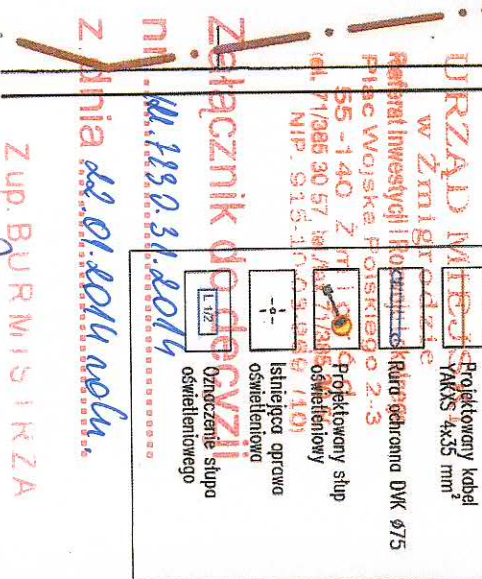 URZĄD MIEJSKI
w Żmigrodzie
Referat Inwestycji i Rozwoju
Plac Wojska Polskiego 2-3
55-140 Żmigród
tel. 71/385 30 57
NIP: 915-10
Załącznik do decyzji
nr
z dnia 22.01.2014 roku.
Z up. BURMISTRZA
Projektowany kabel
YAKXS 4x35 mm²
Rura ochronna DVK ø75
Projektowany słup
oświetleniowy
Istniejąca oprawa
oświetleniowa
L 1/2
Oznaczenie słupa
oświetleniowego